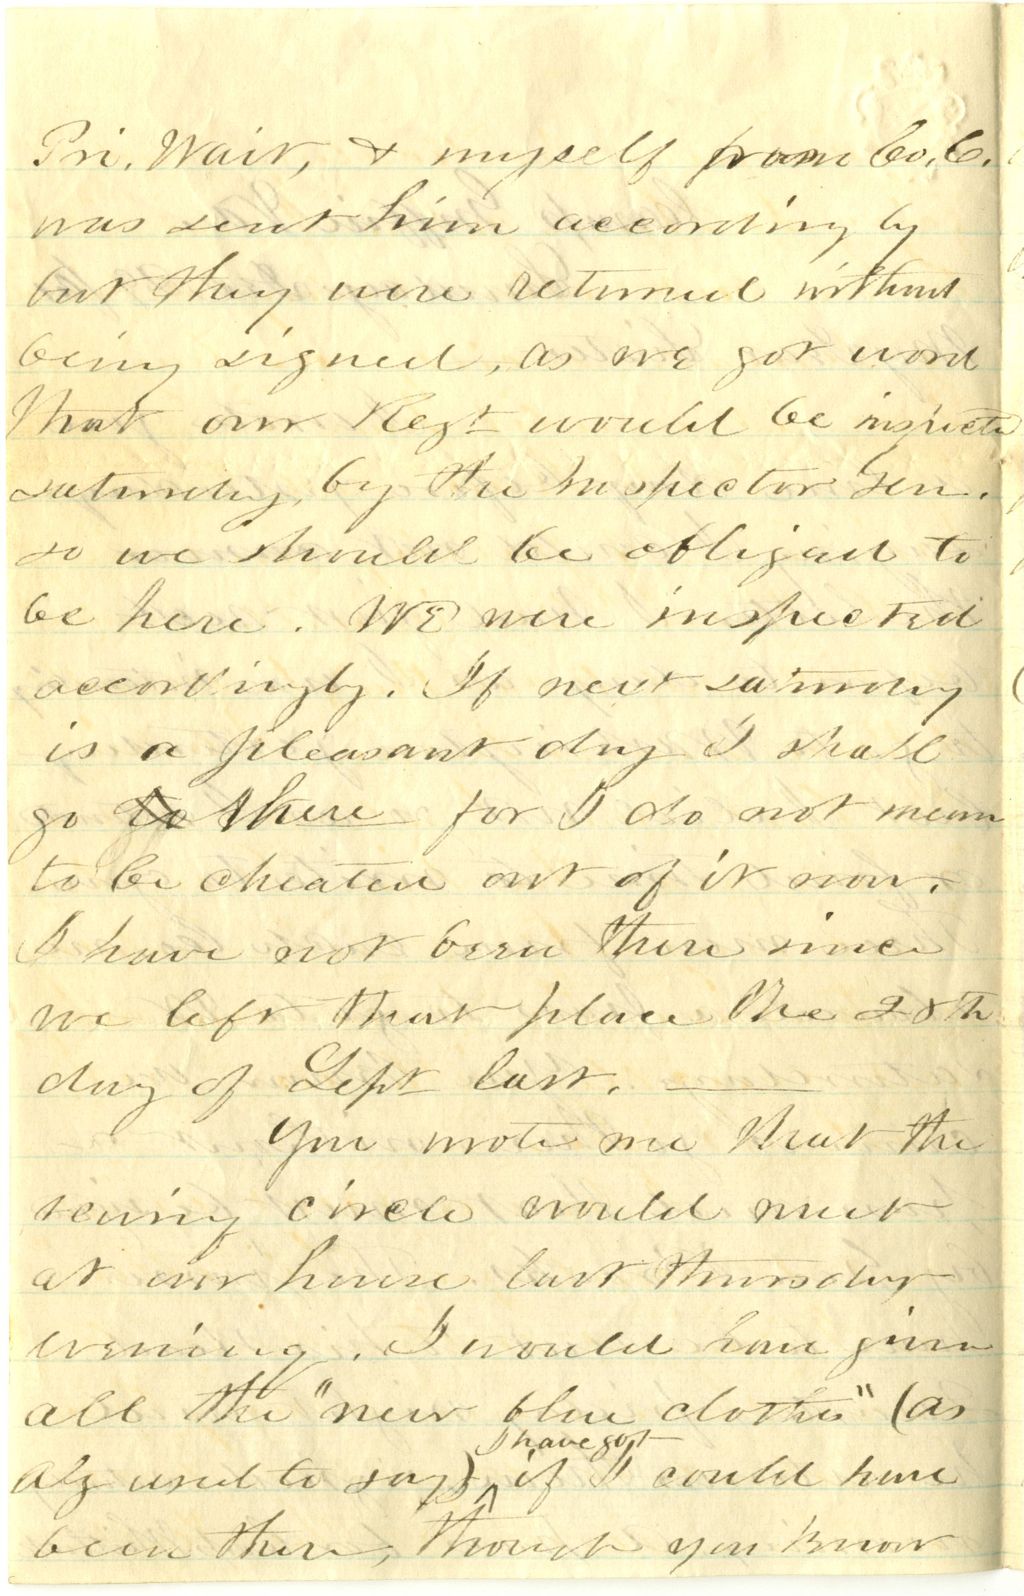 Pri. Wait, & myself from Co. C.
was sent him according by
but they were returned without
being signed, as we got word
that our Regt would be inspected
saturday, by the Inspector Gen.
so we should be obliged to
be here. WE were inspected
accordingly. If next saturday
is a pleasant day I shall
go to there for I do not mean
to be cheated out of it now.
I have not been there since
we left that place the 28th
day of Sept last. ——
You wrote me that the
sewing circle would meet
at our house last thursday
evening. I would have given
all the "new blue clothes" (as
I have got
Alz used to say) ^ if I could have
been there, though you know